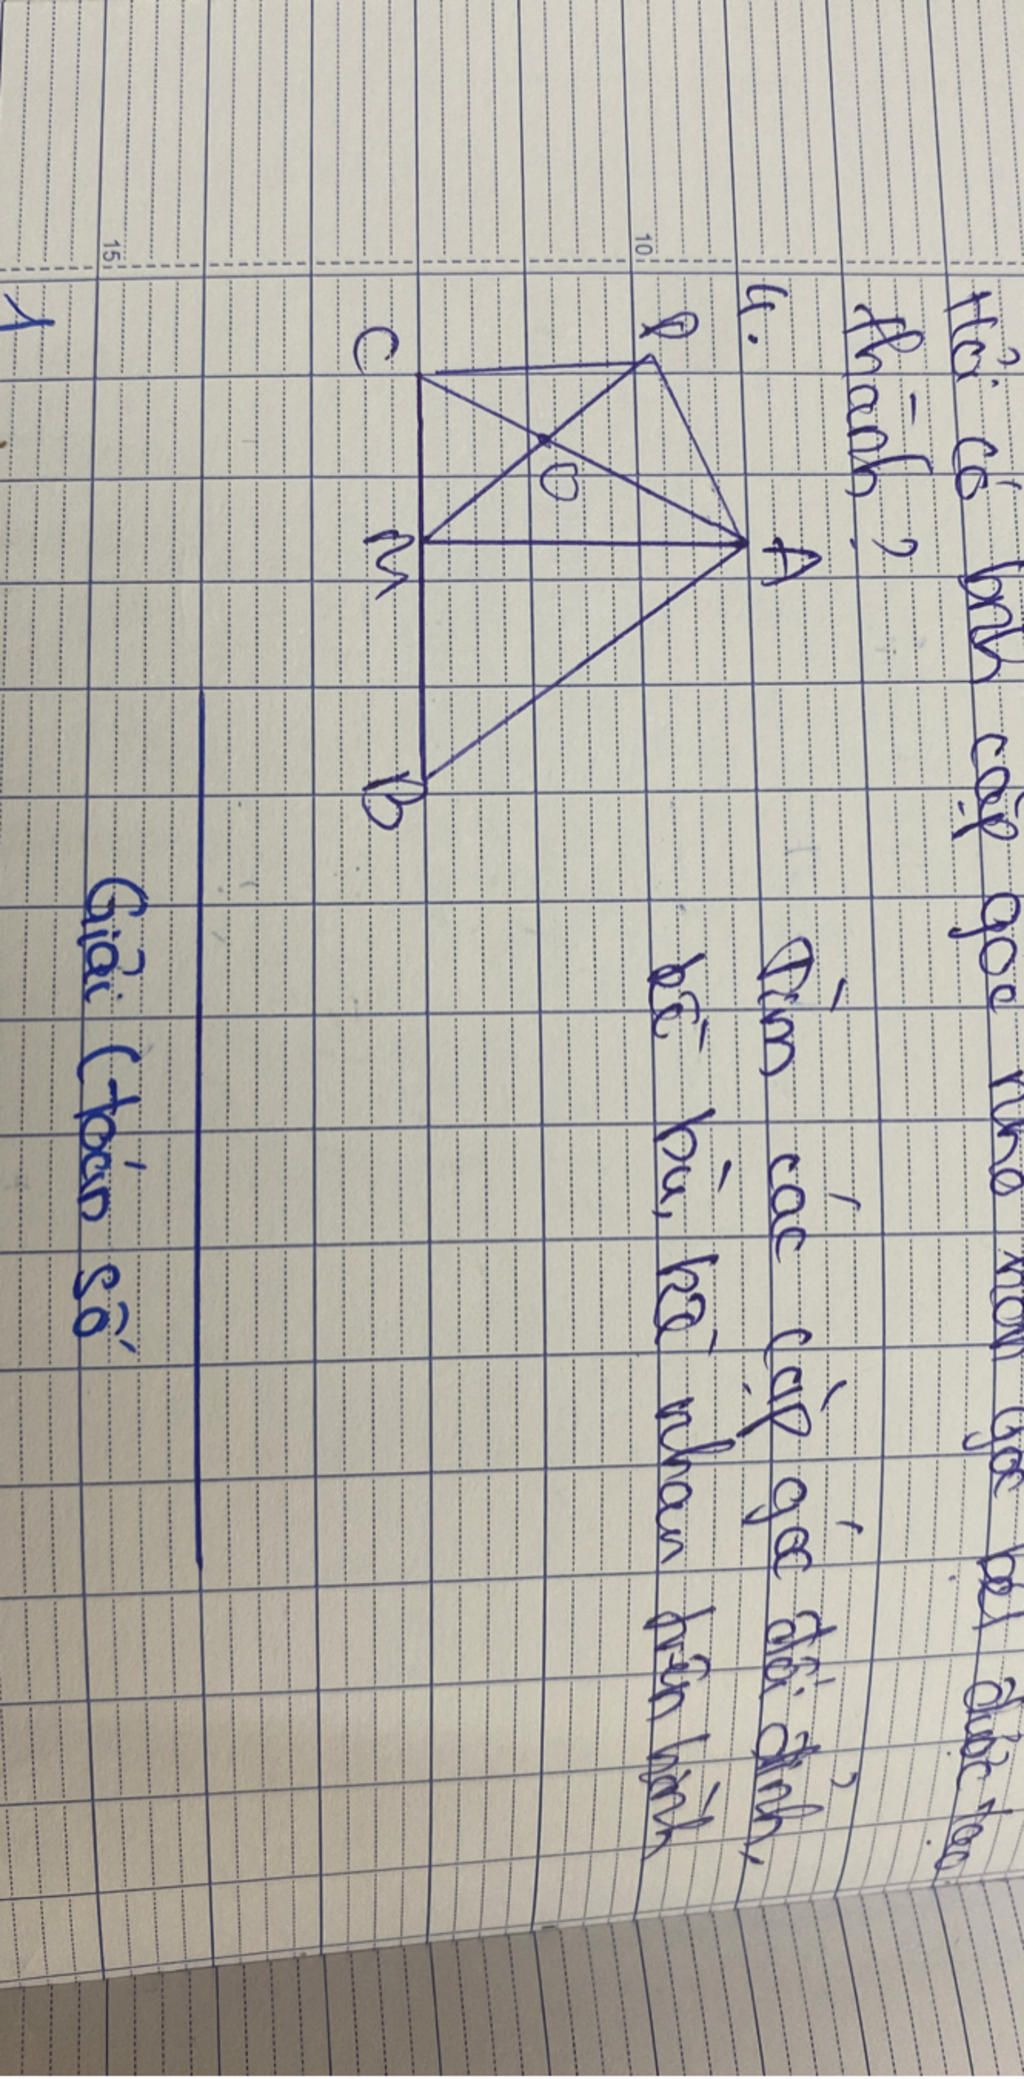 Hỏi có bnh cặp góc nhỏ hơn góc bẹt được tạo
thành?
4.
Tìm các cặp góc đối đỉnh,
kề bù, kề nhau trên hình
A
P
O
C
M
B
10
15
Giải (toán số
1